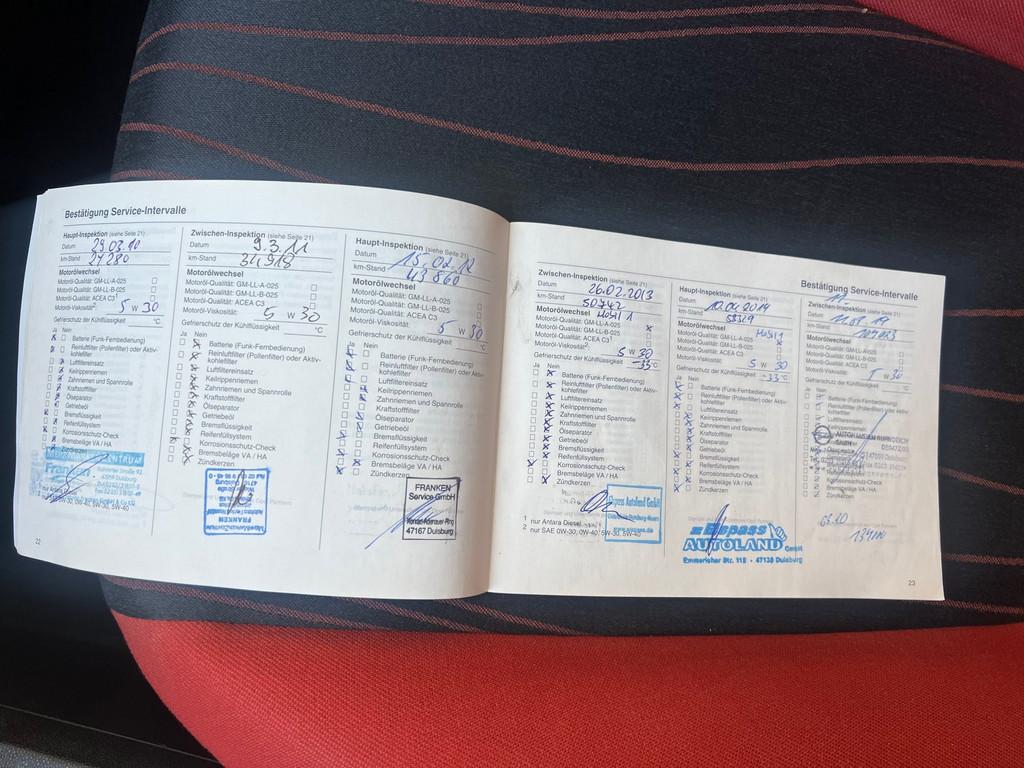 Bestätigung Service-Intervalle
Haupt-Inspektion (siehe Seite 21)
Datum 29.03.10
km-Stand 27280
Motorölwechsel
Motoröl-Qualität: GM-LL-A-025
Motoröl-Qualität: GM-LL-B-025
Motoröl-Qualität: ACEA C3¹
Motoröl-Viskosität² 5 W 30
Gefrierschutz der Kühlflüssigkeit °C
Ja Nein
Batterie (Funk-Fernbedienung)
Reinluftfilter (Pollenfilter) oder Aktiv-
kohlefilter
Luftfiltereinsatz
Keilrippenriemen
Zahnriemen und Spannrolle
Kraftstofffilter
Ölseparator
Getriebeöl
Bremsflüssigkeit
Reifenfüllsystem
Korrosionsschutz-Check
Bremsbeläge VA / HA
Zündkerzen
22
Zwischen-Inspektion (siehe Seite 21)
Datum 9.3.11
km-Stand 34918
Motorölwechsel
Motoröl-Qualität: GM-LL-A-025
Motoröl-Qualität: GM-LL-B-025
Motoröl-Qualität: ACEA C3
Motoröl-Viskosität: 5 W 30
Gefrierschutz der Kühlflüssigkeit °C
Ja Nein
Batterie (Funk-Fernbedienung)
Reinluftfilter (Pollenfilter) oder Aktiv-
kohlefilter
Luftfiltereinsatz
Keilrippenriemen
Zahnriemen und Spannrolle
Kraftstofffilter
Ölseparator
Getriebeöl
Bremsflüssigkeit
Reifenfüllsystem
Korrosionsschutz-Check
Bremsbeläge VA / HA
Zündkerzen
FRANKEN
Haupt-Inspektion (siehe Seite 21)
Datum 15.02.12
km-Stand 43860
Motorölwechsel
Motoröl-Qualität: GM-LL-A-025
Motoröl-Qualität: GM-LL-B-025
Motoröl-Qualität: ACEA C3
Motoröl-Viskosität: 5 W 30
Gefrierschutz der Kühlflüssigkeit °C
Ja Nein
Batterie (Funk-Fernbedienung)
Reinluftfilter (Pollenfilter) oder Aktiv-
kohlefilter
Luftfiltereinsatz
Keilrippenriemen
Zahnriemen und Spannrolle
Kraftstofffilter
Ölseparator
Getriebeöl
Bremsflüssigkeit
Reifenfüllsystem
Korrosionsschutz-Check
Bremsbeläge VA / HA
Zündkerzen
FRANKEN
Service GmbH
Konrad-Adenauer-Ring
47167 Duisburg
Zwischen-Inspektion (siehe Seite 21)
Datum 26.02.2013
km-Stand 50742
Motorölwechsel
Motoröl-Qualität: GM-LL-A-025
Motoröl-Qualität: GM-LL-B-025
Motoröl-Qualität: ACEA C3¹
Motoröl-Viskosität² 5 W 30
Gefrierschutz der Kühlflüssigkeit -35 °C
Ja Nein
Batterie (Funk-Fernbedienung)
Reinluftfilter (Pollenfilter) oder Aktiv-
kohlefilter
Luftfiltereinsatz
Keilrippenriemen
Zahnriemen und Spannrolle
Kraftstofffilter
Ölseparator
Getriebeöl
Bremsflüssigkeit
Reifenfüllsystem
Korrosionsschutz-Check
Bremsbeläge VA / HA
Zündkerzen
1 nur Antara Diesel
2 nur SAE 0W-30, 0W-40, 5W-30, 5W-40
Bestätigung Service-Intervalle
Haupt-Inspektion (siehe Seite 21)
Datum 10.04.2014
km-Stand 58329
Motorölwechsel
Motoröl-Qualität: GM-LL-A-025
Motoröl-Qualität: GM-LL-B-025
Motoröl-Qualität: ACEA C3
Motoröl-Viskosität: 5 W 30
Gefrierschutz der Kühlflüssigkeit -33 °C
Ja Nein
Batterie (Funk-Fernbedienung)
Reinluftfilter (Pollenfilter) oder Aktiv-
kohlefilter
Luftfiltereinsatz
Keilrippenriemen
Zahnriemen und Spannrolle
Kraftstofffilter
Ölseparator
Getriebeöl
Bremsflüssigkeit
Reifenfüllsystem
Korrosionsschutz-Check
Bremsbeläge VA / HA
Zündkerzen
AUTOLAND GmbH
Emmericher Str. 118 · 47138 Duisburg
Zwischen-Inspektion (siehe Seite 21)
Datum
km-Stand
Motorölwechsel
Motoröl-Qualität: GM-LL-A-025
Motoröl-Qualität: GM-LL-B-025
Motoröl-Qualität: ACEA C3
Motoröl-Viskosität: W 30
Gefrierschutz der Kühlflüssigkeit °C
Ja Nein
Batterie (Funk-Fernbedienung)
Reinluftfilter (Pollenfilter) oder Aktiv-
kohlefilter
Luftfiltereinsatz
Keilrippenriemen
Zahnriemen und Spannrolle
Kraftstofffilter
Bremsbeläge VA / HA
Zündkerzen
23